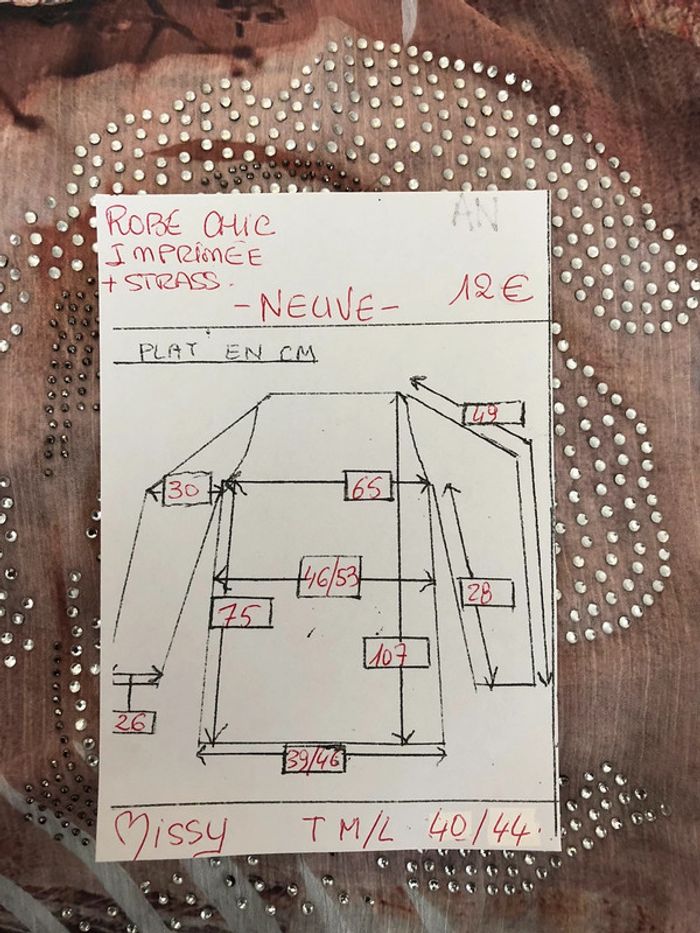 ROBE CHIC AN
IMPRIMÉE
+ STRASS.
- NEUVE - 12€
PLAT EN CM
49
30 65
46/53
28
75
107
26
39/46
Missy T M/L 40/44.